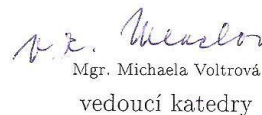 Mgr. Michaela Voltrová
vedoucí katedry